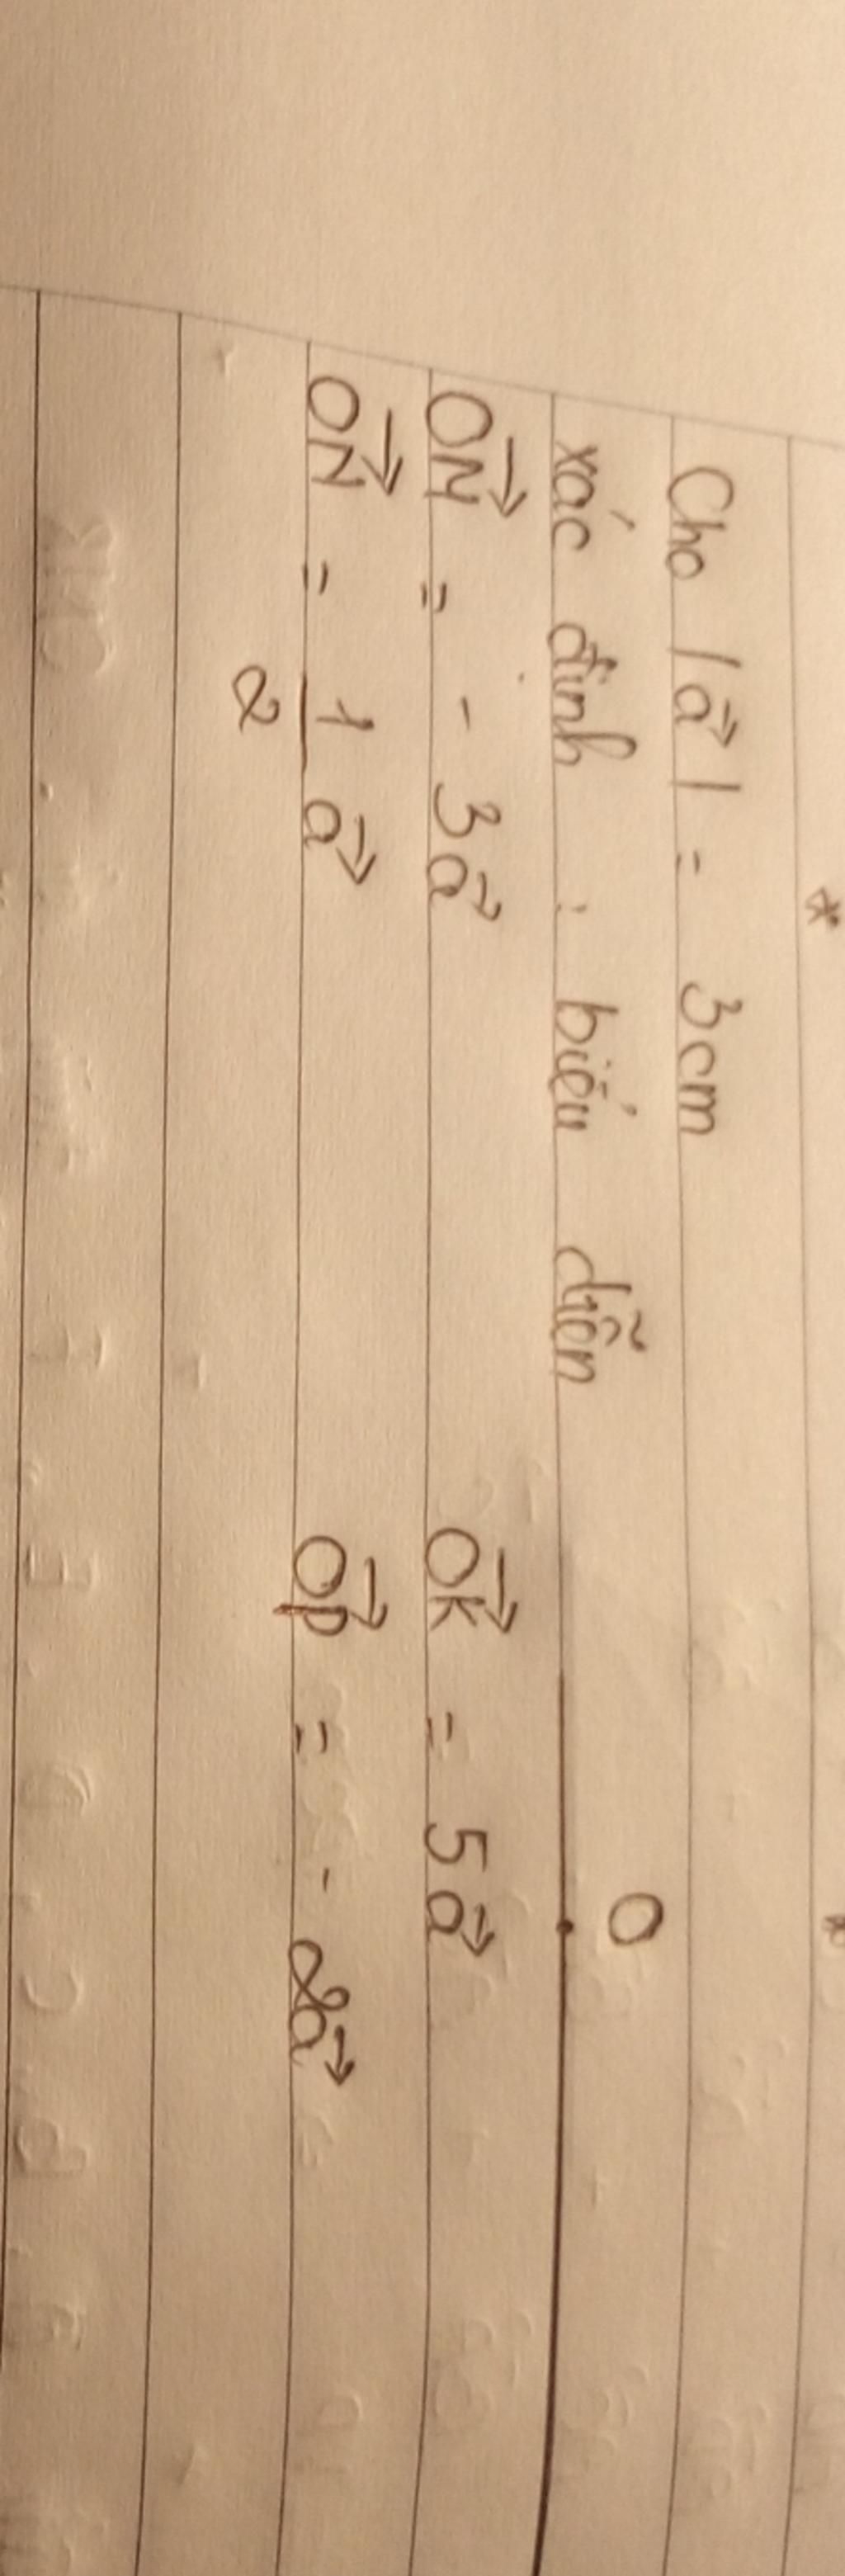 Cho |a⃗| = 3cm
xác định : biểu diễn O
OM⃗ = - 3a⃗ OK⃗ = 5a⃗
ON⃗ = 1/2 a⃗ OP⃗ = - 2a⃗